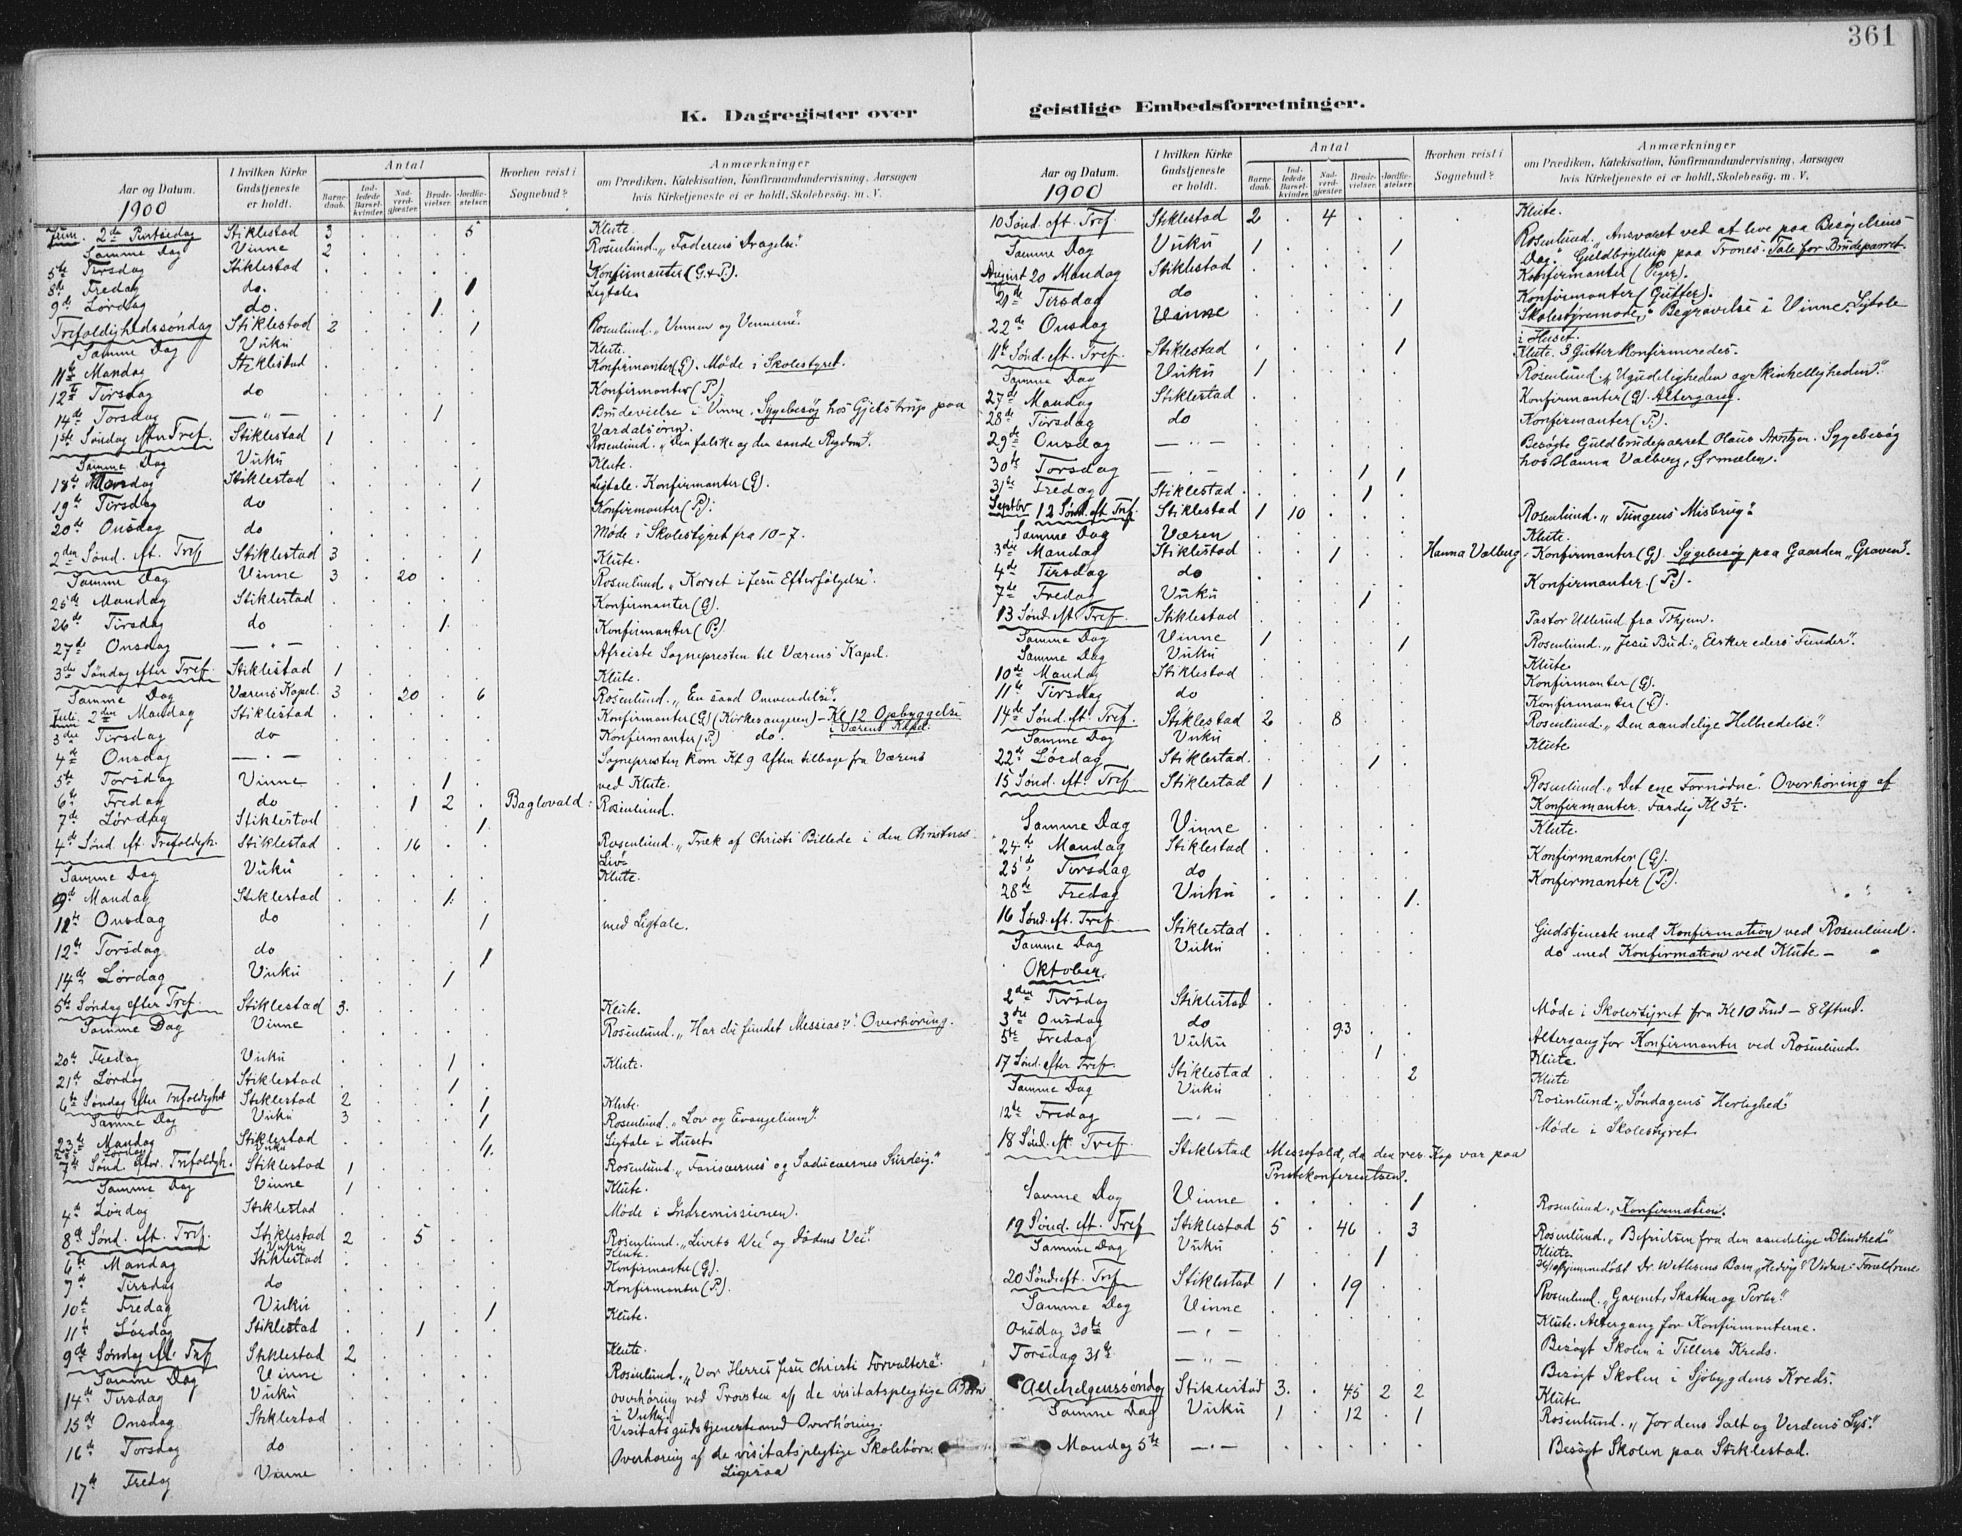 361
K. Dagregister over geistlige Embedsforretninger.
Aar og Datum. 1900
I hvilken Kirke Gudstjeneste er holdt.
Antal
Barnedaab. Indledede Barselkvinder. Nadverdgjæster. Brudevielser. Jordfæstelser.
Hvorhen reist i Sognebud?
Anmærkninger
om Prædiken, Katekisation, Konfirmandundervisning, Aarsagen
hvis Kirketjeneste ei er holdt, Skolebesøg. m. V.
Juni. 2den Pintsedag Stiklestad 3 . . . 5 Klüte.
Samme Dag Vinne 2 Rosenlund. „Faderens Dragelse"
5te Tirsdag Stiklestad Konfirmanter (G. & P.)
8de Fredag do. 1 Ligtale
9de Lørdag do. 1
Trefoldighedssøndag Stiklestad 2 . . . 1 Rosenlund. „Vennen og Vennerne".
Samme Dag Vuku Klüte.
11te Mandag Stiklestad Konfirmanter (G). Møde i Skolestyret.
12te Tirsdag do Konfirmanter (P.)
14de Torsdag — „ — 1 Brudevielse i Vinne. Sygebesøg hos Gjetstrup paa
Vardalsøren.
1ste Søndag efter Tref. Stiklestad 1 Rosenlund. „Den falske og den sande Rigdom".
Samme Dag Vuku Klüte.
18de Mandag Stiklestad 1 Ligtale. Konfirmanter (G).
19de Tirsdag do Konfirmanter (P.)
20de Onsdag do Møde i Skolestyret fra 10-7.
2den Sønd. eft. Tref Stiklestad 3 . . . 1 Klüte.
Samme Dag Vinne 3 . 20 Rosenlund „Korset i Jesu Efterfølgelse".
25de Mandag Stiklestad Konfirmanter (G).
26de Tirsdag do 1 Konfirmanter (P.)
27de Onsdag — „ — Afreiste Sognepresten til Værens Kapel.
3die Søndag efter Tref Stiklestad 1 Klüte.
Samme Dag Værens Kapel. 3 . 20 . 6 Rosenlund. „En sand Omvendelse".
Juli 2den Mandag Stiklestad Konfirmanter (G) (Kirkesangeren) – Kl 12 Opbyggelse
i Værens Kapel.
3die Tirsdag do Konfirmanter (P.) do.
4de Onsdag — „ — Sognepresten kom Kl 9 Aften tilbage fra Værens
5te Torsdag Vinne 1 ved Klüte.
6te Fredag do 1 2 Baglovald. Rosenlund.
7de Lørdag Stiklestad 1
4de Sønd. eft. Trefoldigh. Stiklestad . . 16 Rosenlund. „Træk af Christi Billede i den Christnes
Liv"
Samme Dag Vuku Klüte.
9de Mandag Stiklestad 1
Onsdag do 1 med Ligtale.
12te Torsdag do 1
14de Lørdag Vuku 1
5te Søndag efter Tref. Stiklestad 3. Klüte.
Samme Dag Vinne Rosenlund. „Har du fundet Messias?" Overhøring.
20de Fredag Vuku 1 Klüte.
21de Lørdag Stiklestad 1
6te Søndag efter Trefoldighed Stiklestad 2 . . . 1 Klüte.
Samme Dag Vuku 3 . . . 1 Rosenlund. „Lov og Evangelium".
23de Mandag Stiklestad Ligtale i Huset
Lørdag Vuku
7de Sønd. efter Trefoldigh. Stiklestad 1 Rosenlund. „Farisæernes og Saducæernes Surdeig."
Samme Dag Vinne 1 Klüte.
4de Lørdag Stiklestad Møde i Indremissionen.
8de Sønd. eft. Tref. Stiklestad 2 . 5 Rosenlund. „Livets Vei og Dødens Vei."
Vuku Klüte.
6te Mandag Stiklestad Konfirmanter (G).
7de Tirsdag do Konfirmanter (P.)
10de Fredag Vuku 1 Klüte.
11te Lørdag Stiklestad 1
9de Søndag eft. Tref Stiklestad 2 Klüte.
Samme Dag Vinne Rosenlund. „Vor Herres Jesu Christi Forvaltere".
14de Tirsdag Vuku overhøring ved Provsten af de visitatspligtige Børn
i Vuku.
15de Onsdag Stiklestad Visitatsgudstjeneste med Overhøring.
16de Torsdag do Overhøring af de visitatspligtige Skolebørn.
17de Fredag Vinne Ligesaa
Aar og Datum. 1900
I hvilken Kirke Gudstjeneste er holdt.
Antal
Barnedaab. Indledede Barselkvinder. Nadverdgjæster. Brudevielser. Jordfæstelser.
Hvorhen reist i Sognebud?
Anmærkninger
om Prædiken, Katekisation, Konfirmandundervisning, Aarsagen
hvis Kirketjeneste ei er holdt, Skolebesøg. m. V.
10 Sønd. eft. Tref. Stiklestad 2 . 4 Klüte.
Samme Dag Vuku 1 . . . 1 Rosenlund. „Ansvaret ved at leve paa Besøgelsens
Dag. Guldbryllup paa Trones. Tale for Brudeparret.
August 20 Mandag Stiklestad Konfirmanter (Piger).
21de Tirsdag do Konfirmanter (Gutter).
22de Onsdag Vinne 1 Skolestyremøde, Begravelse i Vinne. Ligtale
i Huset.
11te Sønd. eft. Tref. Stiklestad 1 Klüte. 3 Gutter konfirmeredes.
Samme Dag Vuku 1 Rosenlund. „Ugudeligheden og Skinhelligheden".
27de Mandag Stiklestad Konfirmanter (G). Altergang.
28de Tirsdag do Konfirmanter (P.)
29de Onsdag — „ — Besøgte Guldbrudeparret Olaus Arntzen. Sygebesøg
hos Hanna Valberg, Ørmælen.
30te Torsdag — „ — 1 1
31te Fredag Stiklestad 1
Septbr 12 Sønd. eft. Tref. Stiklestad 1 10 Rosenlund. „Tungens Misbrug".
Samme Dag Væren Klüte.
3die Mandag Stiklestad 1 Hanna Valberg Konfirmanter (G) Sygebesøg paa Gaarden „Graven".
4de Tirsdag do Konfirmanter (P.)
7de Fredag Vuku 1
13 Sønd. eft. Tref. Stiklestad Pastor Ullerud fra
Samme Dag Vinne 1 . . . 1 Rosenlund. „Jesu Bud: Elsker eders Fiender".
Samme Dag Vuku Klüte
10de Mandag Stiklestad Konfirmanter (G).
11te Tirsdag do Konfirmanter (P.)
14de Sønd. eft. Tref. Stiklestad 2 . 8 Rosenlund. „Den aandelige Helbredelse".
Samme Dag Vuku Klüte
22de Lørdag Stiklestad. 1
15 Sønd. eft. Tref. Stiklestad 1 Rosenlund. „Det ene Fornødne". Overhøring af
Konfirmanter. Færdig Kl 3½.
Samme Dag Vinne Klüte.
24de Mandag Stiklestad Konfirmanter (G).
25de Tirsdag do Konfirmanter (P.)
28de Fredag Vuku 1.
16 Sønd. eft. Tref. Stiklestad Gudstjeneste med Konfirmation ved Rosenlund.
Samme Dag Vuku do med Konfirmation ved Klüte –
Oktober.
2den Tirsdag Stiklestad Møde i Skolestyret fra Kl 10 Fmd – 8 Eftmd.
3die Onsdag do 93 Altergang for Konfirmanter ved Rosenlund.
5te Fredag Vuku 1 Klüte.
17 Sønd. efter Tref. Stiklestad 2 Klüte
Samme Dag Vuku Rosenlund. „Søndagens Herlighed"
12te Fredag — „ — Møde i Skolestyret.
18 Sønd. eft. Tref. Stiklestad Messefald, da den res. Kap var paa
Prestekonferentsen.
Samme Dag Vinne 1 Rosenlund. „Konfirmation.
19 Sønd. eft. Tref Stiklestad 5 . 46 . 3 Rosenlund. „Befrielsen fra den aandelige Blindhed"
Samme Dag Vuku 1 Klüte.
hjemmedøbt Dr. Wethlsens Barn „Hedvig".
20 Sønd. eft. Tref Stiklestad 1 . 19 Rosenlund. „Garnet, Skatten og Perlen"
Samme Dag Vinne Klüte. Altergang for Konfirmanterne.
Onsdag 30te — „ — Besøgt Skolen i Tillers Kreds.
Torsdag 31te — „ — Besøgt Skolen i Sjøbygdens Kreds.
Allehelgenssøndag Stiklestad 3. . 45 2 2 Klüte.
Samme Dag Vuku 1 . 12 . 1 Rosenlund. „Jordens Salt og Verdens Lys".
Mandag 5te — „ — Besøgt Skolen paa Stiklestad.